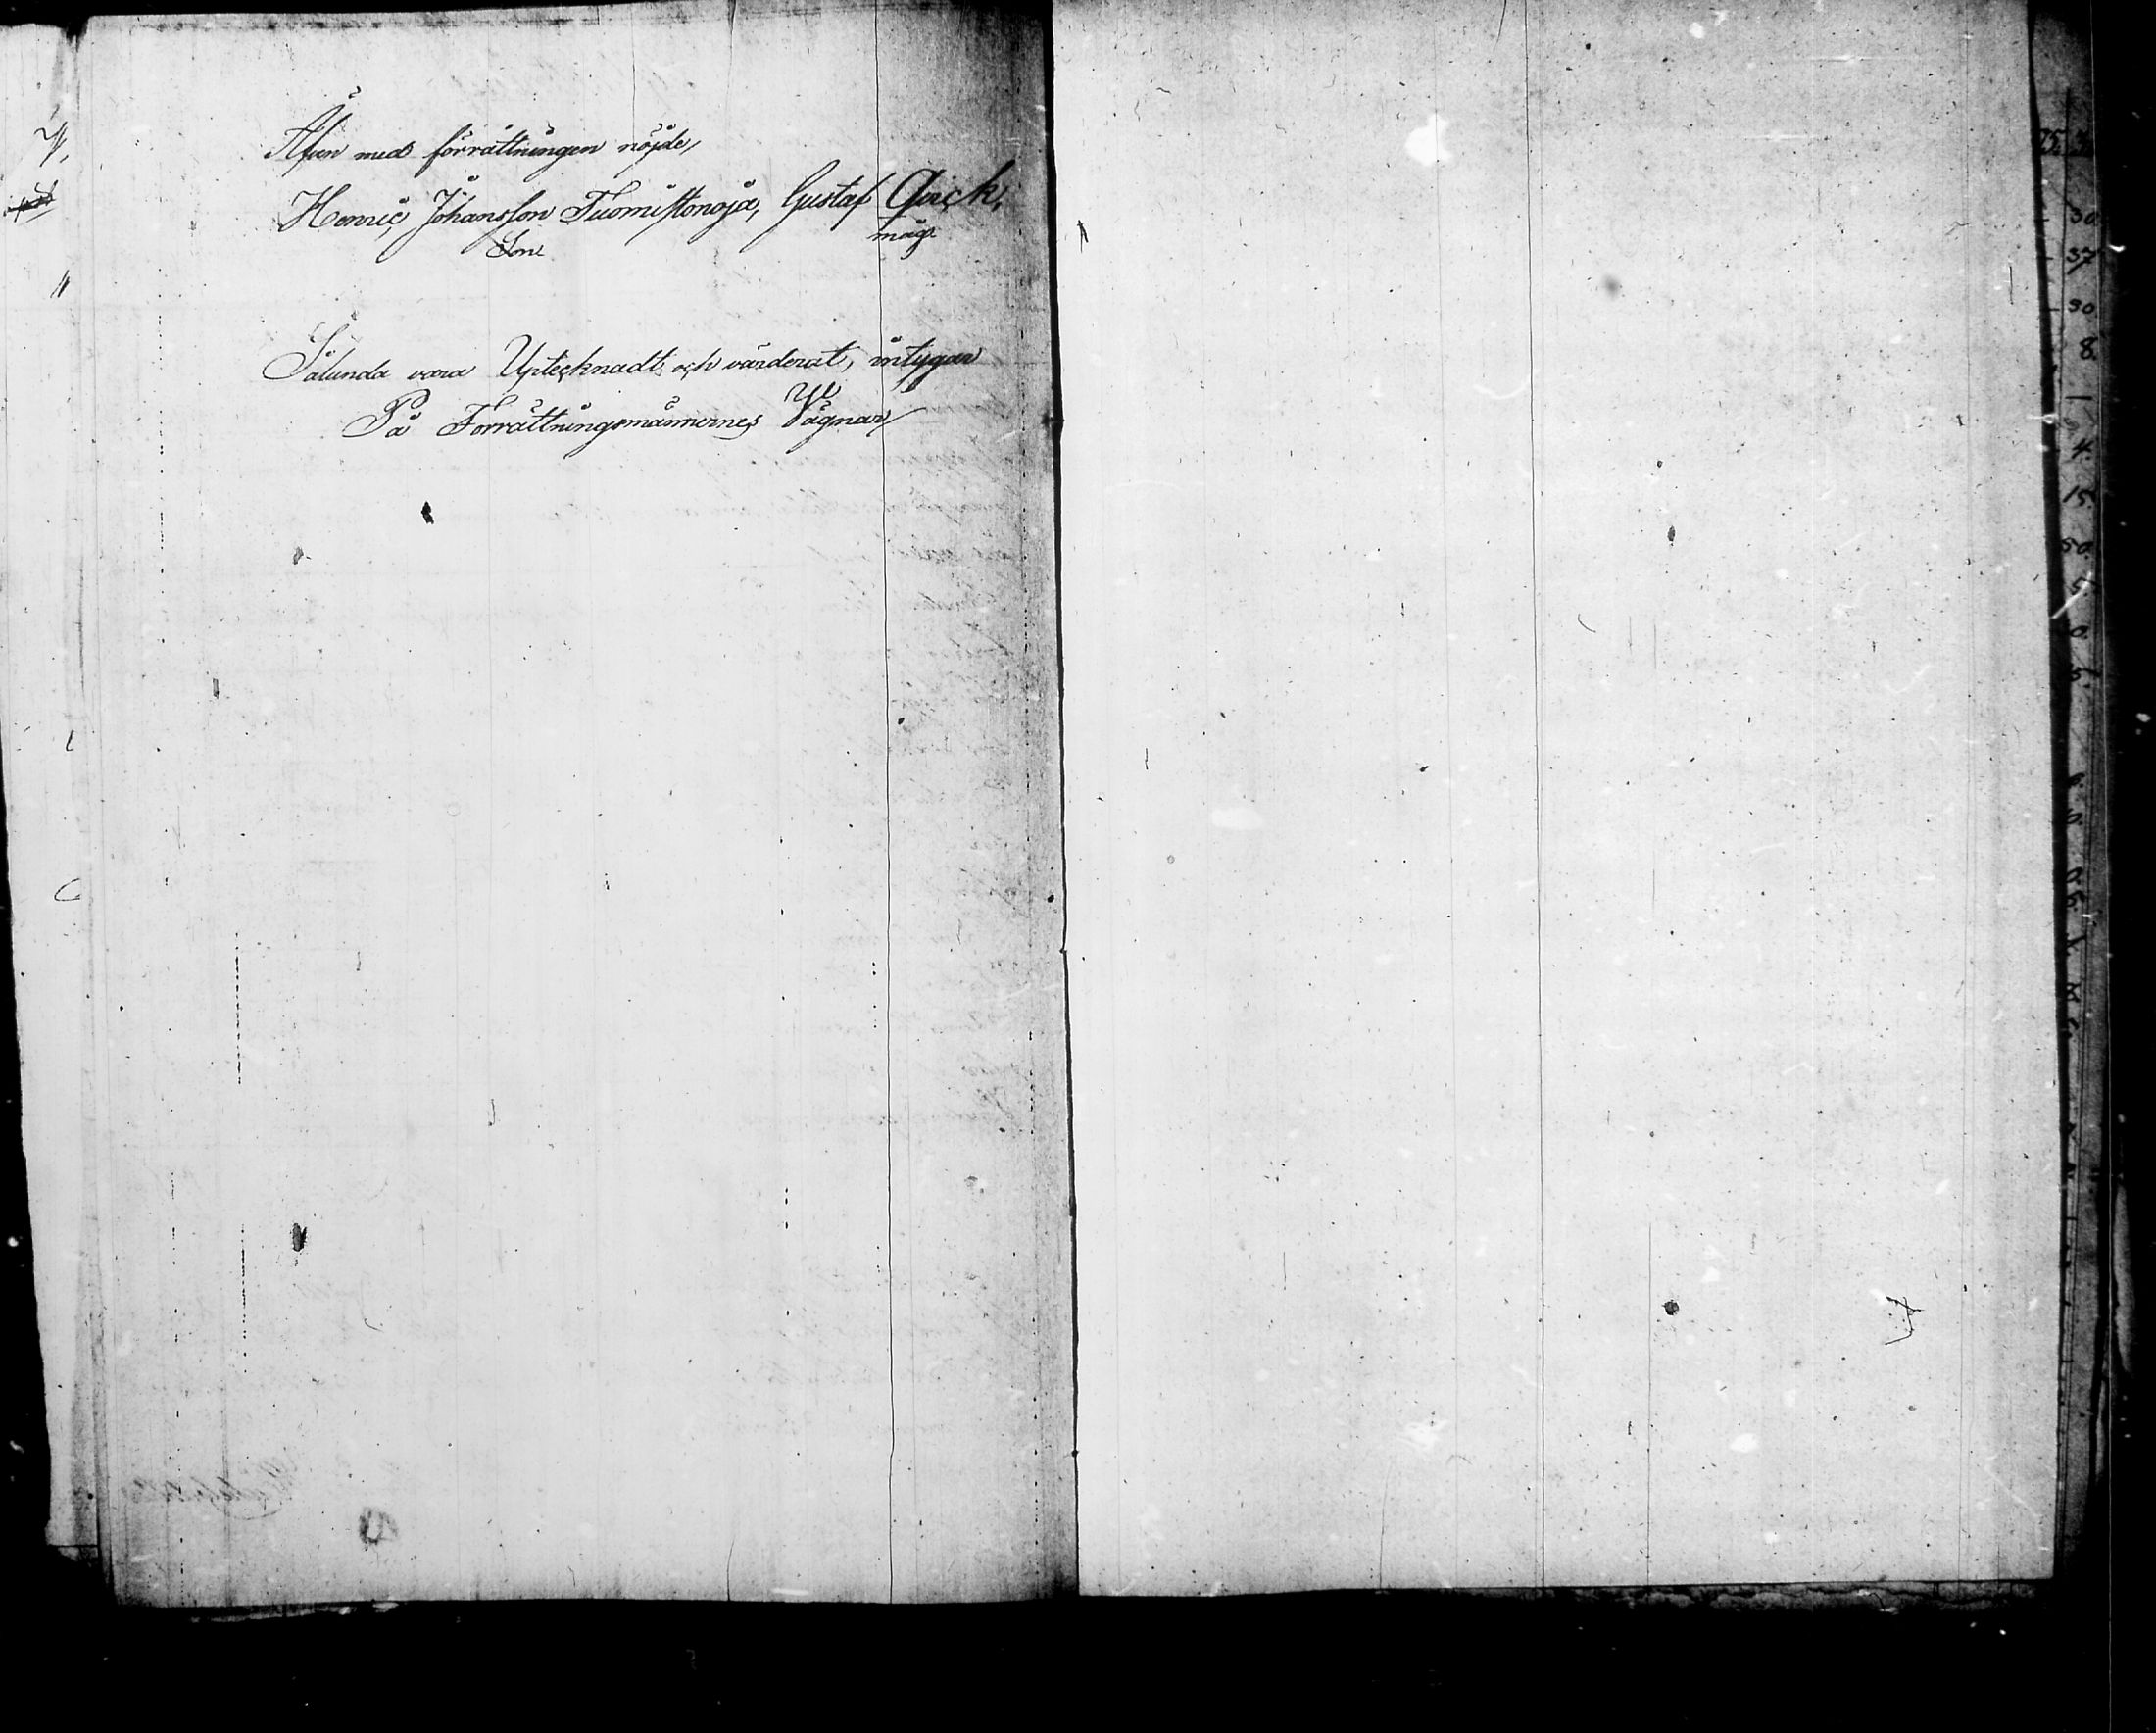 Äfven med förrättningen nöjde,
Henric Johansson Tuomistonoja, Gustaf Qvick,
Son måg
Sålunda vara Uptecknadt och värderat, intygar
På Förrättningsmännernes Vägnar
25
30
37
30
8
1
4
15
50